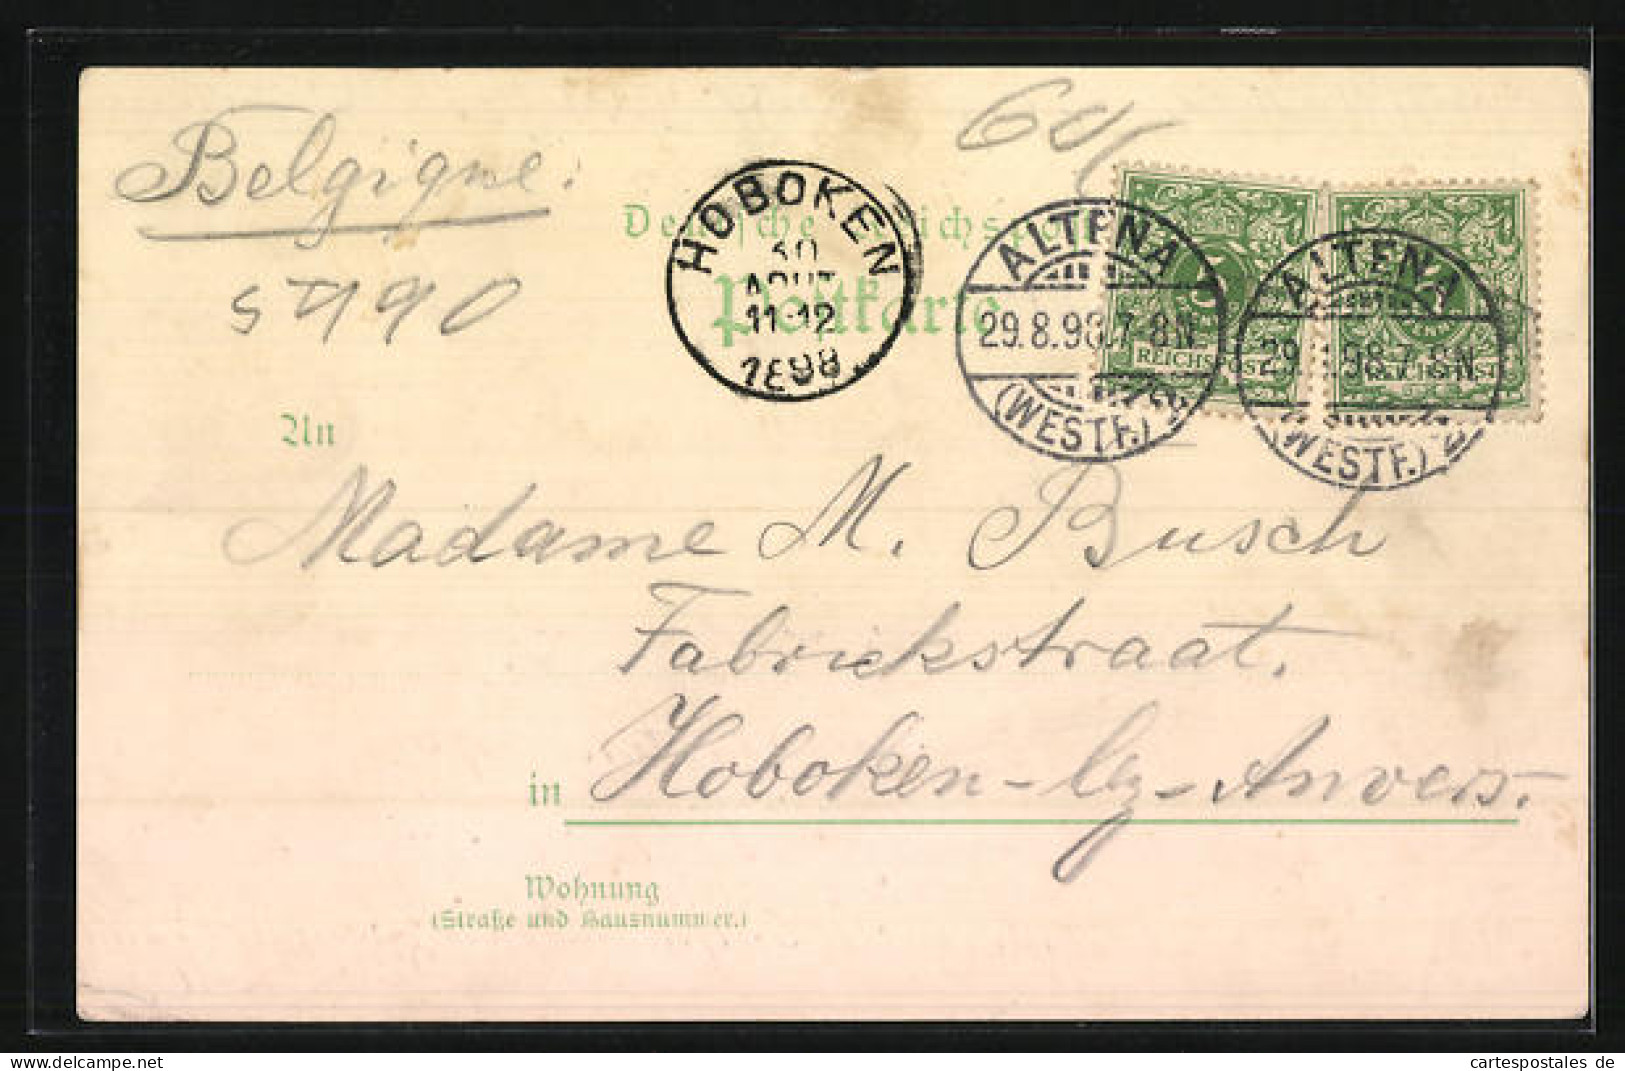 Belgique.
60
5490
Deutsche Reichspost
Postkarte
HOBOKEN
30
AOUT
11-12
1898
ALTENA
29.8.98.7-8N.
(WESTF.)
ALTENA
29.8.98.7-8N.
(WESTF.)
REICHSPOST
REICHSPOST
An
Madame M. Busch
Fabriekstraat.
in Hoboken-lez-Anvers.
Wohnung
(Straße und Hausnummer.)
www.delcampe.net
cartespostales de